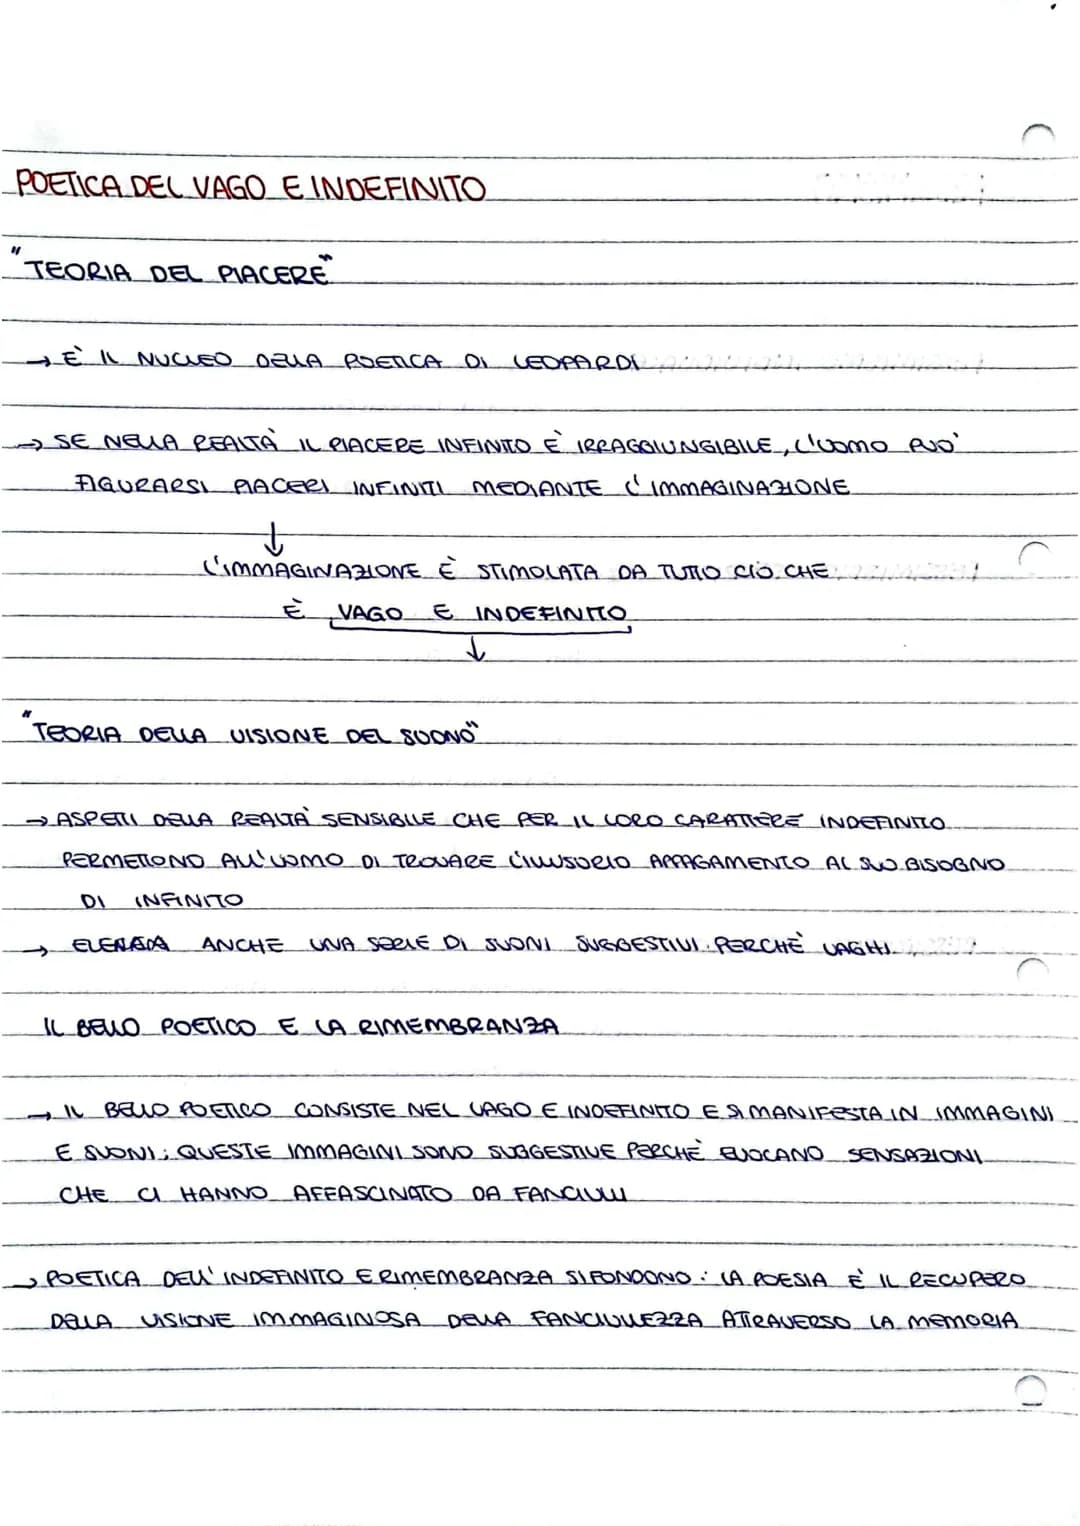 POETICA DEL VAGO E INDEFINITO
"TEORIA DEL PIACERE"
→ È IL NUCLEO DELLA POETICA DI LEOPARDI
→ SE NELLA REALTÀ IL PIACERE INFINITO È IRRAGGIUNGIBILE, L'UOMO PUO'
FIGURARSI PIACERI INFINITI MEDIANTE L'IMMAGINAZIONE
↓
L'IMMAGINAZIONE È STIMOLATA DA TUTTO CIÒ CHE
È VAGO E INDEFINITO
↓
"TEORIA DELLA VISIONE DEL SUONO"
→ ASPETTI DELLA REALTÀ SENSIBILE CHE PER IL LORO CARATTERE INDEFINITO
PERMETTONO ALL'UOMO DI TROVARE ILLUSORIO APPAGAMENTO AL SUO BISOGNO
DI INFINITO
→ ELENCA ANCHE UNA SERIE DI SUONI SUGGESTIVI PERCHÈ VAGHI
IL BELLO POETICO E LA RIMEMBRANZA
→ IL BELLO POETICO CONSISTE NEL VAGO E INDEFINITO E SI MANIFESTA IN IMMAGINI
E SUONI; QUESTE IMMAGINI SONO SUGGESTIVE PERCHÈ EVOCANO SENSAZIONI
CHE CI HANNO AFFASCINATO DA FANCIULLI
→ POETICA DELL'INDEFINITO E RIMEMBRANZA SI FONDONO: LA POESIA È IL RECUPERO
DELLA VISIONE IMMAGINOSA DELLA FANCIULLEZZA ATTRAVERSO LA MEMORIA